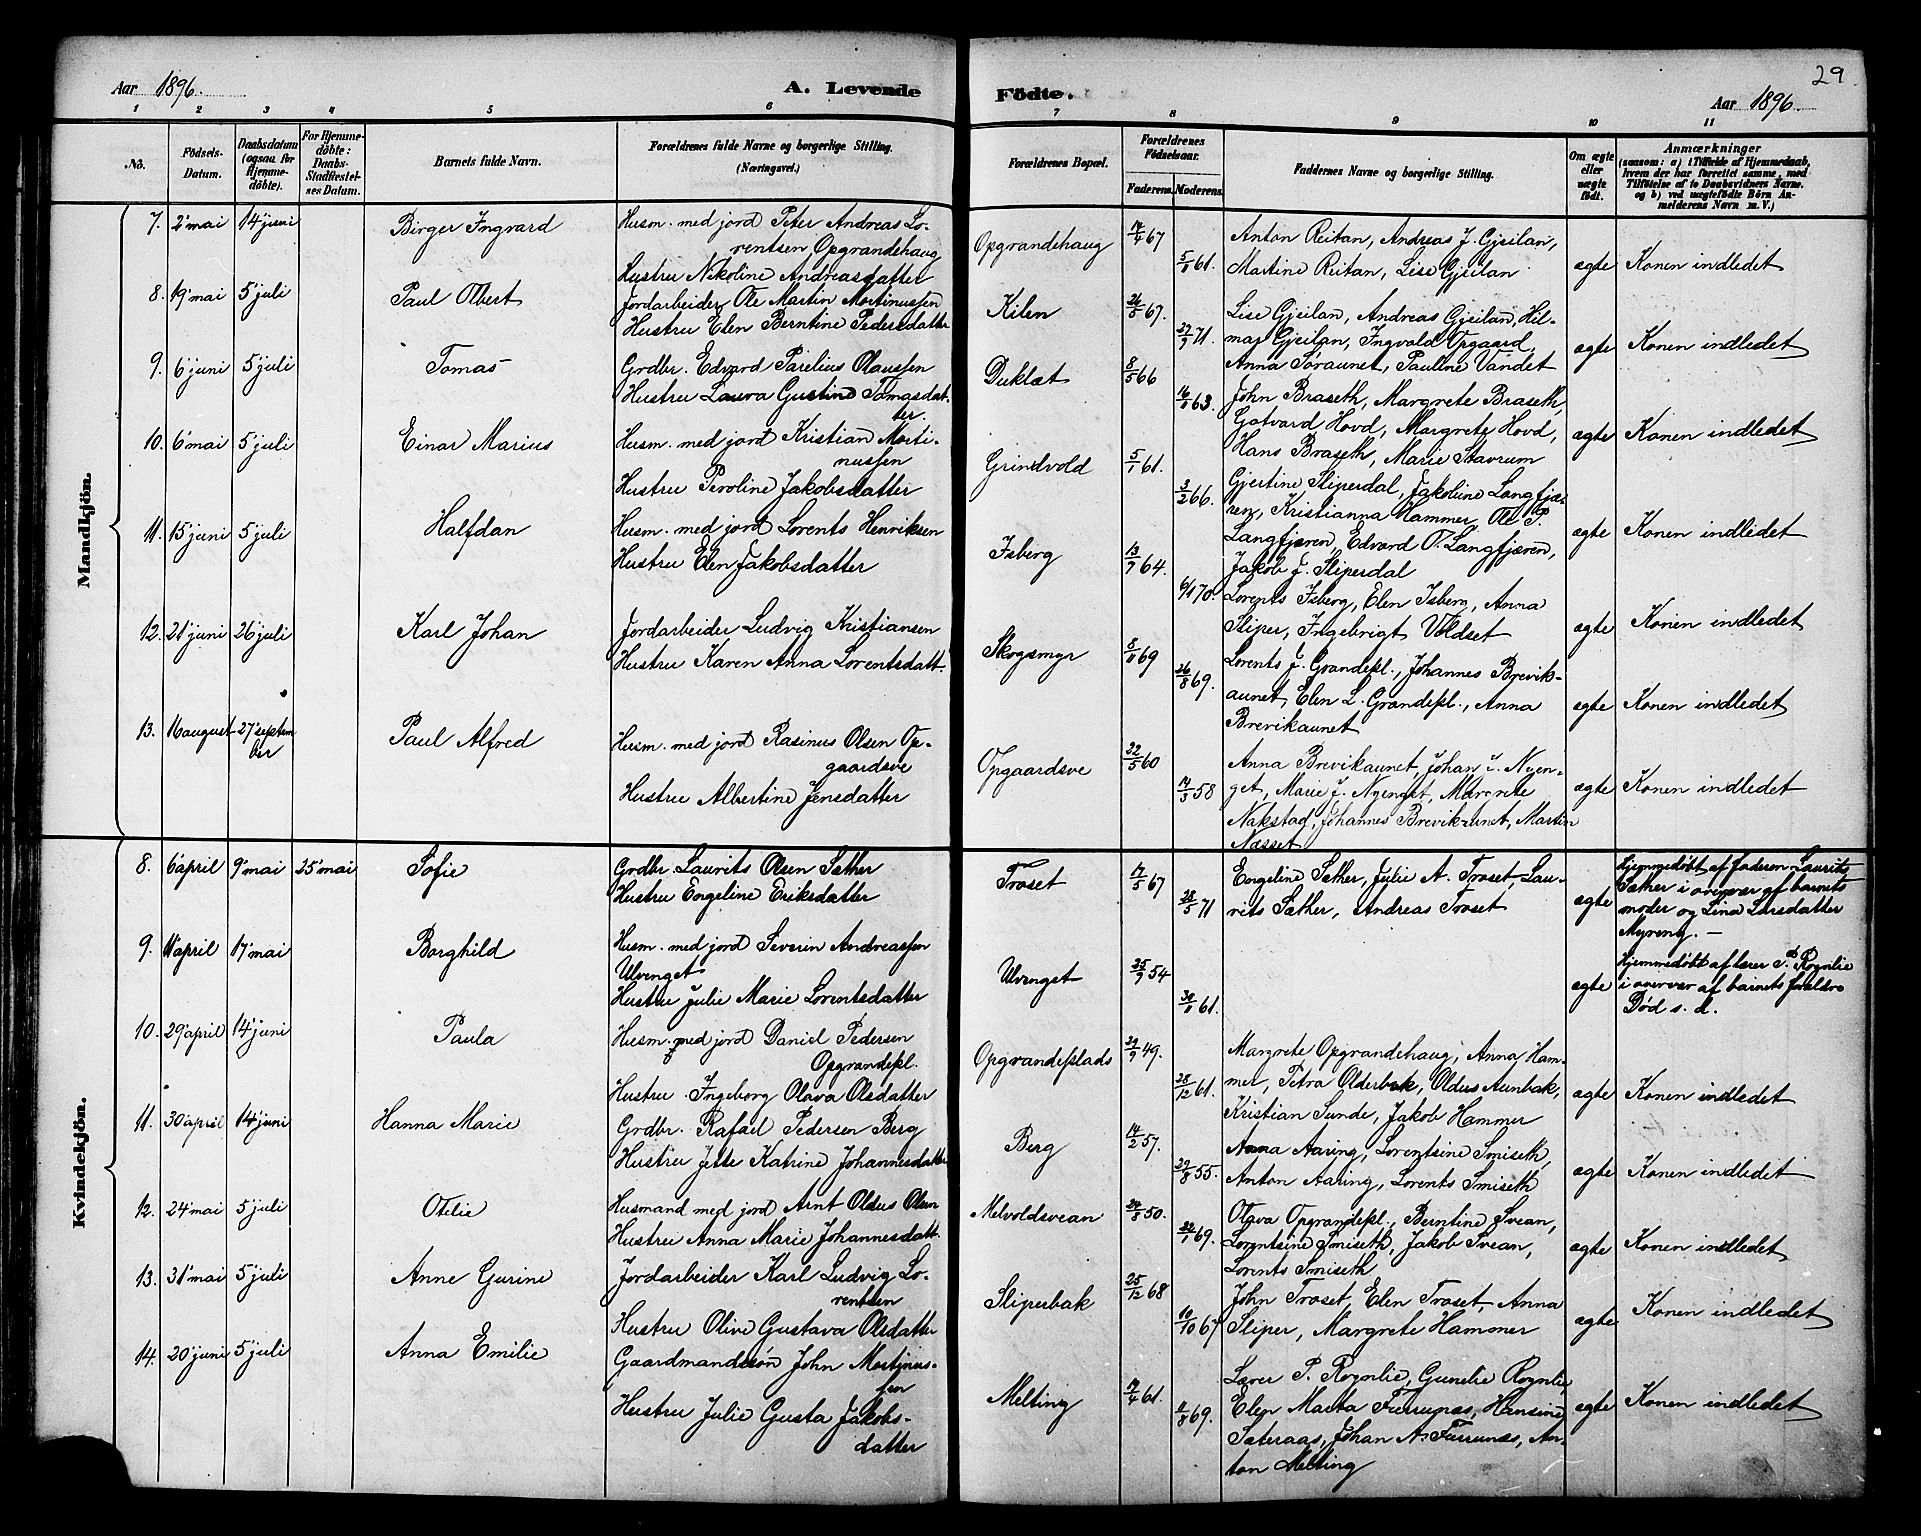 29
Aar 1896.
A. Levende
Födte.
Aar 1896.
1 2 3 4 5 6 7 8 9 10 11
No.
Födsels-
Datum.
Daabsdatum
(ogsaa for
Hjemme-
döbte).
For Hjemme-
döbte:
Daabs-
Stadfæstel-
ses Datum.
Barnets fulde Navn.
Forældrenes fulde Navne og borgerlige Stilling.
(Næringsvei.)
Forældrenes Bopæl.
Forældrenes
Födselsaar.
Faderens. Moderens.
Faddernes Navne og borgerlige Stilling.
Om ægte
eller
uægte
födt.
Anmærkninger
(saasom: a) i Tilfælde af Hjemmedaab,
hvem der har forrettet samme, med
Tilföielse af to Daabsvidners Navne.
og b) ved uægtefödte Börn An-
melderens Navn m. V.)
Mandkjön.
7. 2 mai 14 juni Birger Ingvard
Husm. med jord Peter Andreas Lo-
rentsen Opgrandehaug
Hustru Nikoline Andreasdatter
Opgrandehaug 67 61.
Anton Reitan, Andreas J. Gjeilan,
Martine Reitan, Lise Gjeilan
ægte Konen indledet
8. 19 mai 5 juli Paul Olbert
Jordarbeider Ole Martin Mortinussen
Hustru Elen Berntine Pedersdatter
Kilen 26/5 67. 71.
Lise Gjeilan, Andreas Gjeilan, Hil-
mar Gjeilan, Ingvald Opgaard,
Anna Søraunet, Pauline Vandet
ægte Konen indledet
9. 6 juni 5 juli Tomas
Grdbr. Edvard Parelius Olaussen
Hustru Laura Gustine Tomasdat-
ter.
Duklæt 8/5 66 63.
John Braseth, Margrete Braseth,
Gotvard Hovd, Margrete Hovd,
Hans Braseth, Marie Stavrum
ægte Konen indledet
10. 6 mai 5 juli Einar Marius
Husm. med jord Kristian Morti-
nussen
Hustru Peroline Jakobsdatter
Grindvold 5/1 61. 3/2 66.
Gjertine Sliperdal, Jakoline Langfjæ-
ren, Kristianna Hammer, Ole P.
Langfjæren, Edvard O. Langfjæren,
Jakob J. Sliperdal
ægte Konen indledet
11. 15 juni 5 juli Halfdan
Husm. med jord Lorents Henriksen
Hustru Elen Jakobsdatter
Isberg 13/7 64. 6/1 70.
Lorents Isberg, Elen Isberg, Anna
Sliper, Ingebrigt Voldset
ægte Konen indledet
12. 21 juni 26 juli Karl Johan
Jordarbeider Ludvig Kristiansen
Hustru Karen Anna Lorentsdatt.
Skogsmyr 69 26/8 69.
Lorents J. Grandepl., Johannes Brevik-
aunet, Elen L. Grandepl., Anna
Brevikaunet
ægte Konen indledet
13. 16 august 27 septem
ber Paul Alfred
Husm. med jord Rasinus Olsen Op-
gaardsve
Hustru Albertine Jensdatter
Opgaardsve 60 58
Anna Brevikaunet, Johan J. Nyen-
get, Marie J. Nyenget, Margrete
Nakstad, Johannes Brevikaunet, Martin
Næsset
ægte Konen indledet
Kvindekjön.
8. 6 april 9 mai 25 mai Sofie
Grdbr. Laurits Olsen Sæther
Hustru Engeline Eriksdatter
Troset 67 28/5 71
Engeline Sæther, Julie A. Troset, Lau-
rits Sæther, Andreas Troset
ægte Hjemmedøbt af faderen Laurits
Sæther i overvær af barnets
moder og Lina Larsdatter
Myreng. —
9. 11 april 17 mai Borghild
Husm. med jord Severin Andreassen
Ulvenget
Hustru Julie Marie Lorentsdatter
Ulvenget 25/9 54 61.
ægte Hjemmedøbt af lærer P. Rognlie
i overvær af barnets forældre
Død s. d.
10. 29 april 14 juni Paula
Husm. med jord Daniel Pedersen
Opgrandepl.
Hustru Ingeborg Olava Olsdatter
Opgrandeplads 29/9 49. 28/12 61.
Margrete Opgrandehaug, Anna Ham-
mer, Petra Olderbak, Oldus Aunbak,
Kristian Sunde, Jakob Hammer
ægte Konen indledet
11. 30 april 14 juni Hanna Marie
Grdbr. Rafael Pedersen Berg
Hustru Jette Katrine Johannesdatter
Berg 14/2 57. 29/8 55.
Anna Aaring, Lorentsine Smiseth,
Anton Aaring, Lorents Smiseth
ægte Konen indledet
12. 24 mai 5 juli Otilie
Husmand med jord Arnt Oldus Olsen
Hustru Anna Marie Johannesdatt.
Melvoldsvean 50. 69.
Olava Opgrandepl., Berntine Svean,
Lorentsine Smiseth, Jakob Svean,
Lorents Smiseth
ægte Konen indledet
13. 31 mai 5 juli Anne Gurine
Jordarbeider Karl Ludvig Lo-
rentsen
Hustru Olive Gustava Olsdatter
Sliperbak 25/12 68 10/10 67
John Troset, Elen Troset, Anna
Sliper, Margrete Hammer
ægte Konen indledet
14. 20 juni 5 juli Anna Emilie
Gaardmandssøn John Martinus-
sen
Hustru Julie Gusta Jakobs-
datter
Melting 61. 69.
Lærer P. Rognlie, Gunelie Rognlie
Elen Marta Furrunæs, Hansine
Sæteraas, Johan A. Furrunæs, An-
ton Melting
ægte Konen indledet